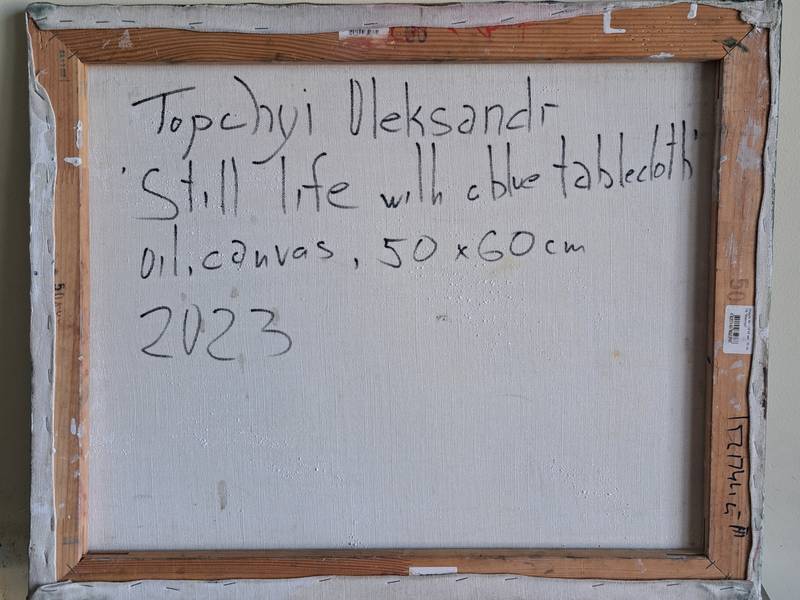 Topchyi Oleksandr
"Still life with a blue tablecloth"
oil, canvas, 50 x 60 cm
2023
50